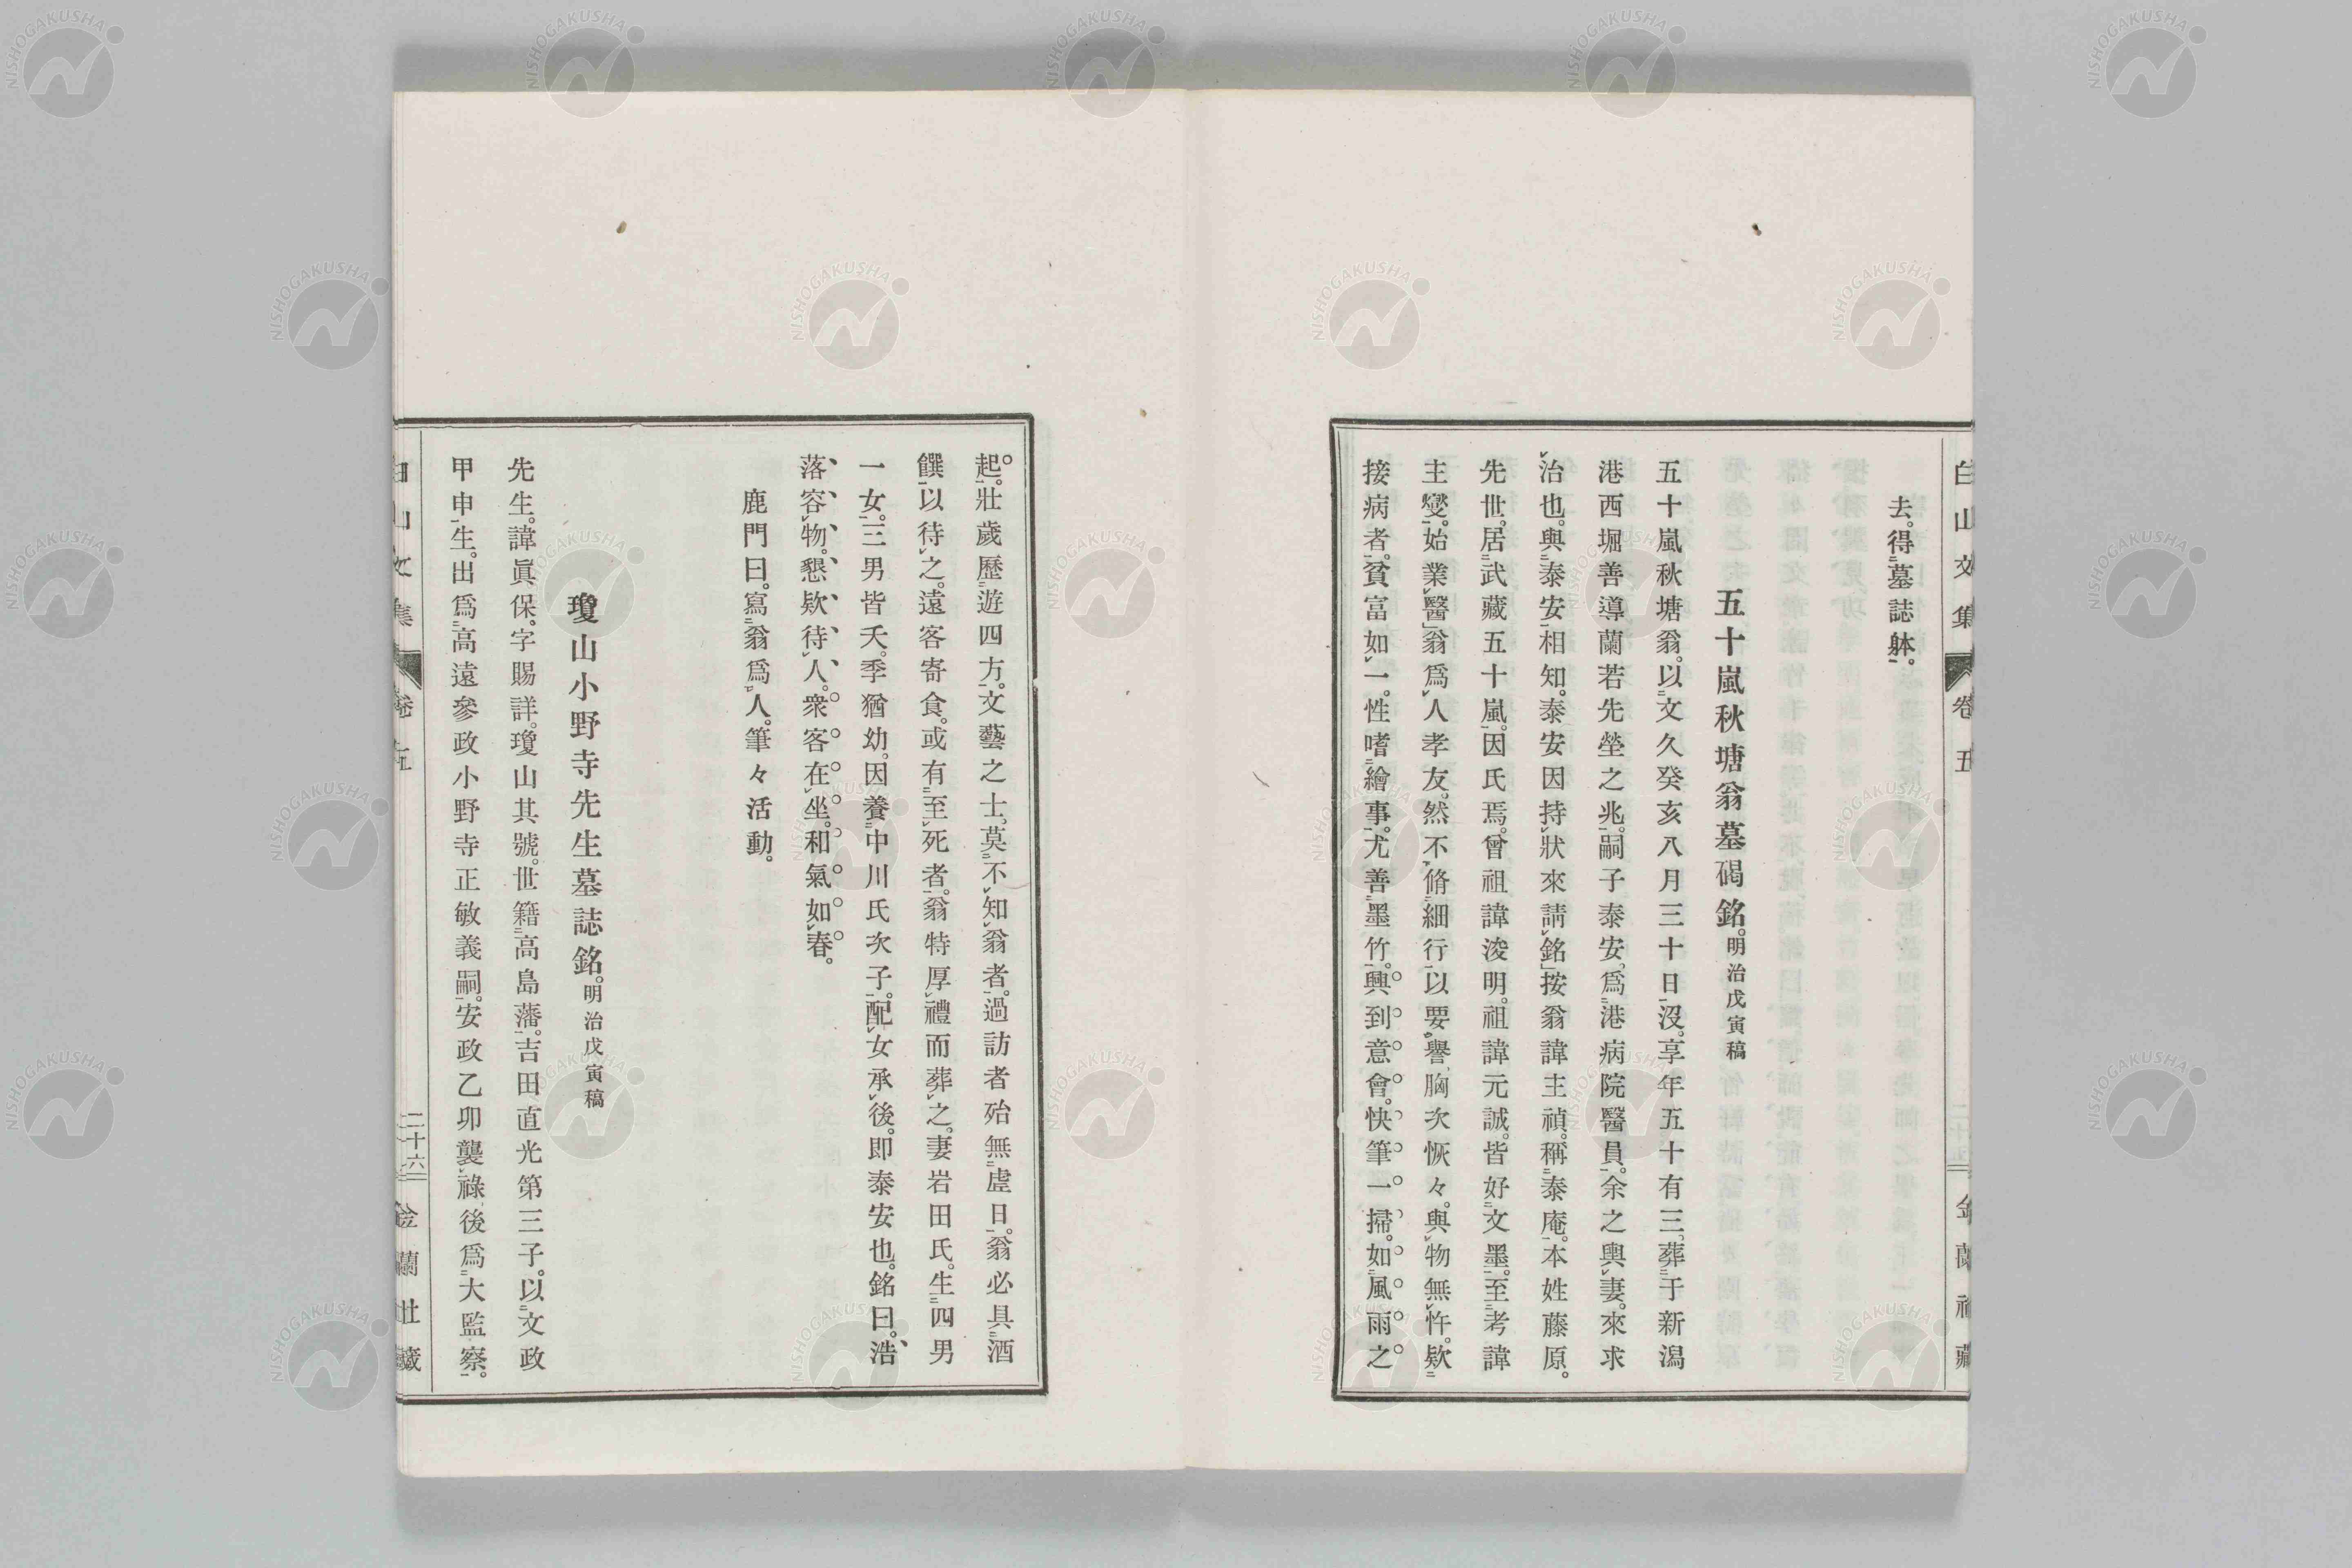 白山文集 卷五 金蘭社藏
去。得墓誌躰。
五十嵐秋塘翁墓碣銘。明治戊寅稿
五十嵐秋塘翁。以文久癸亥八月三十日沒。享年五十有三。葬于新潟
港西堀善導蘭若先塋之兆。嗣子泰安。爲港病院醫員。余之輿妻。來求
治也。與泰安相知。泰安因持狀來請銘。按翁諱主禎。稱泰庵。本姓藤原。
先世。居武藏五十嵐。因氏焉。曾祖諱淩明。祖諱元誠。皆好文墨。至考諱
主燮。始業醫。翁爲人孝友。然不脩細行以要譽。胸次恢々。與物無忤。欵
接病者。貧富如一。性嗜繪事。尤善墨竹。興到意會。快筆一掃。如風雨之
起。壯歲歷遊四方。文藝之士。莫不知翁者。過訪者殆無虛日。翁必具酒
饌以待之。遠客寄食。或有至死者。翁特厚禮而葬之。妻岩田氏。生四男
一女。三男皆夭。季猶幼。因養中川氏次子。配女承後。即泰安也。銘曰。浩
落容物。懇欵待人。衆客在坐。和氣如春。
鹿門曰。寫翁爲人。筆々活動。
瓊山小野寺先生墓誌銘。明治戊寅稿
先生。諱眞保。字賜詳。瓊山其號。世籍高島藩。吉田直光第三子。以文政
甲申生。出爲高遠參政小野寺正敏義嗣。安政乙卯襲祿。後爲大監察。
白山文集 卷五 二十六 金蘭社藏